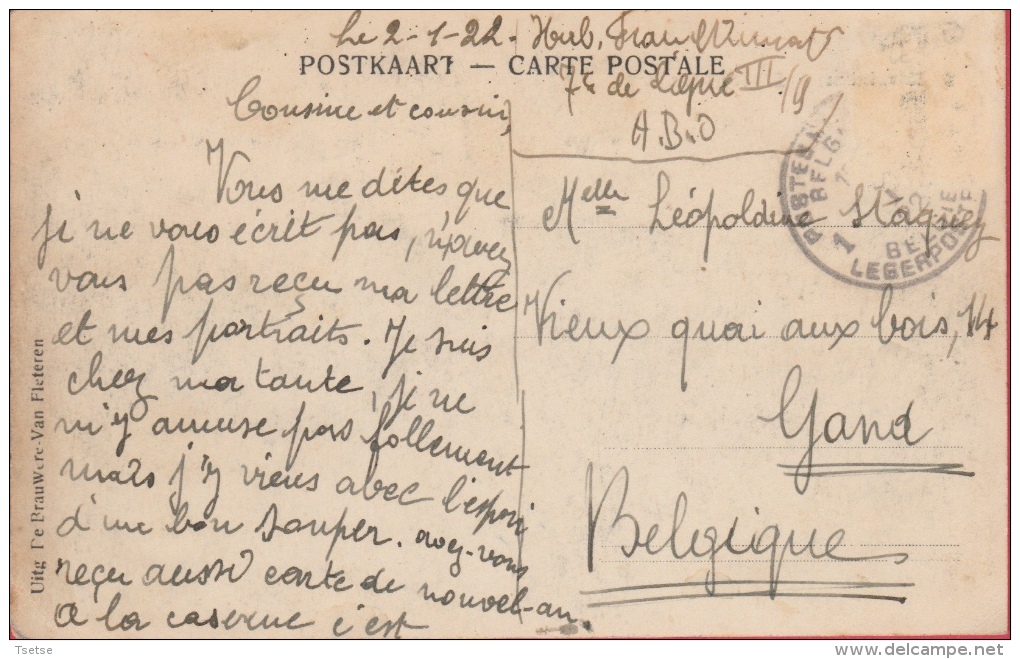 Le 2-1-22.
POSTKAART — CARTE POSTALE
7e de Ligne III/9
A.B.O
Cousine et cousin,
Vous me dites que
je ne vous écrit pas, n'avez
vous pas reçu ma lettre
et mes portraits. Je suis
chez ma tante, je ne
m'y amuse pas follement
mais j'y viens avec l'espoir
d'un bon souper. avez-vous
reçu aussi carte de nouvel-an.
A la caserne c'est
Melle Léopoldine Staquez
Vieux quai aux bois, 14
Gand
Belgique
1 BELGIE
LEGERPOSTERIJ
Uitg De Brauwere-Van Fleteren
Tsetse
delcampe.net